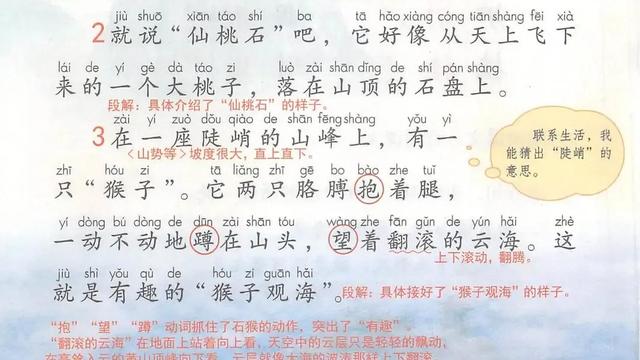 jiù shuō xiān táo shí ba tā hǎo xiàng cóng tiān shàng fēi xià
2 就说“仙桃石”吧，它好像从天上飞下
lái de yí gè dà táo zi luò zài shān dǐng de shí pán shàng
来的一个大桃子，落在山顶的石盘上。
段解：具体介绍了“仙桃石”的样子。
zài yí zuò dǒu qiào de shān fēng shàng yǒu yì
3 在一座陡峭的山峰上，有一
〈山势等〉坡度很大，直上直下。
联系生活，我
能猜出“陡峭”的
意思。
zhī hóu zi tā liǎng zhī gē bo bào zhe tuǐ
只“猴子”。它两只胳膊抱着腿，
yí dòng bú dòng de dūn zài shān tóu wàng zhe fān gǔn de yún hǎi zhè
一动不动地蹲在山头，望着翻滚的云海。这
上下滚动，翻腾。
jiù shì yǒu qù de hóu zi guān hǎi
就是有趣的“猴子观海”。
段解：具体接好了“猴子观海”的样子。
“抱”“望”“蹲”动词抓住了石猴的动作，突出了“有趣”。
“翻滚的云海”在地面上站着向上看，天空中的云层只是轻轻的飘动，